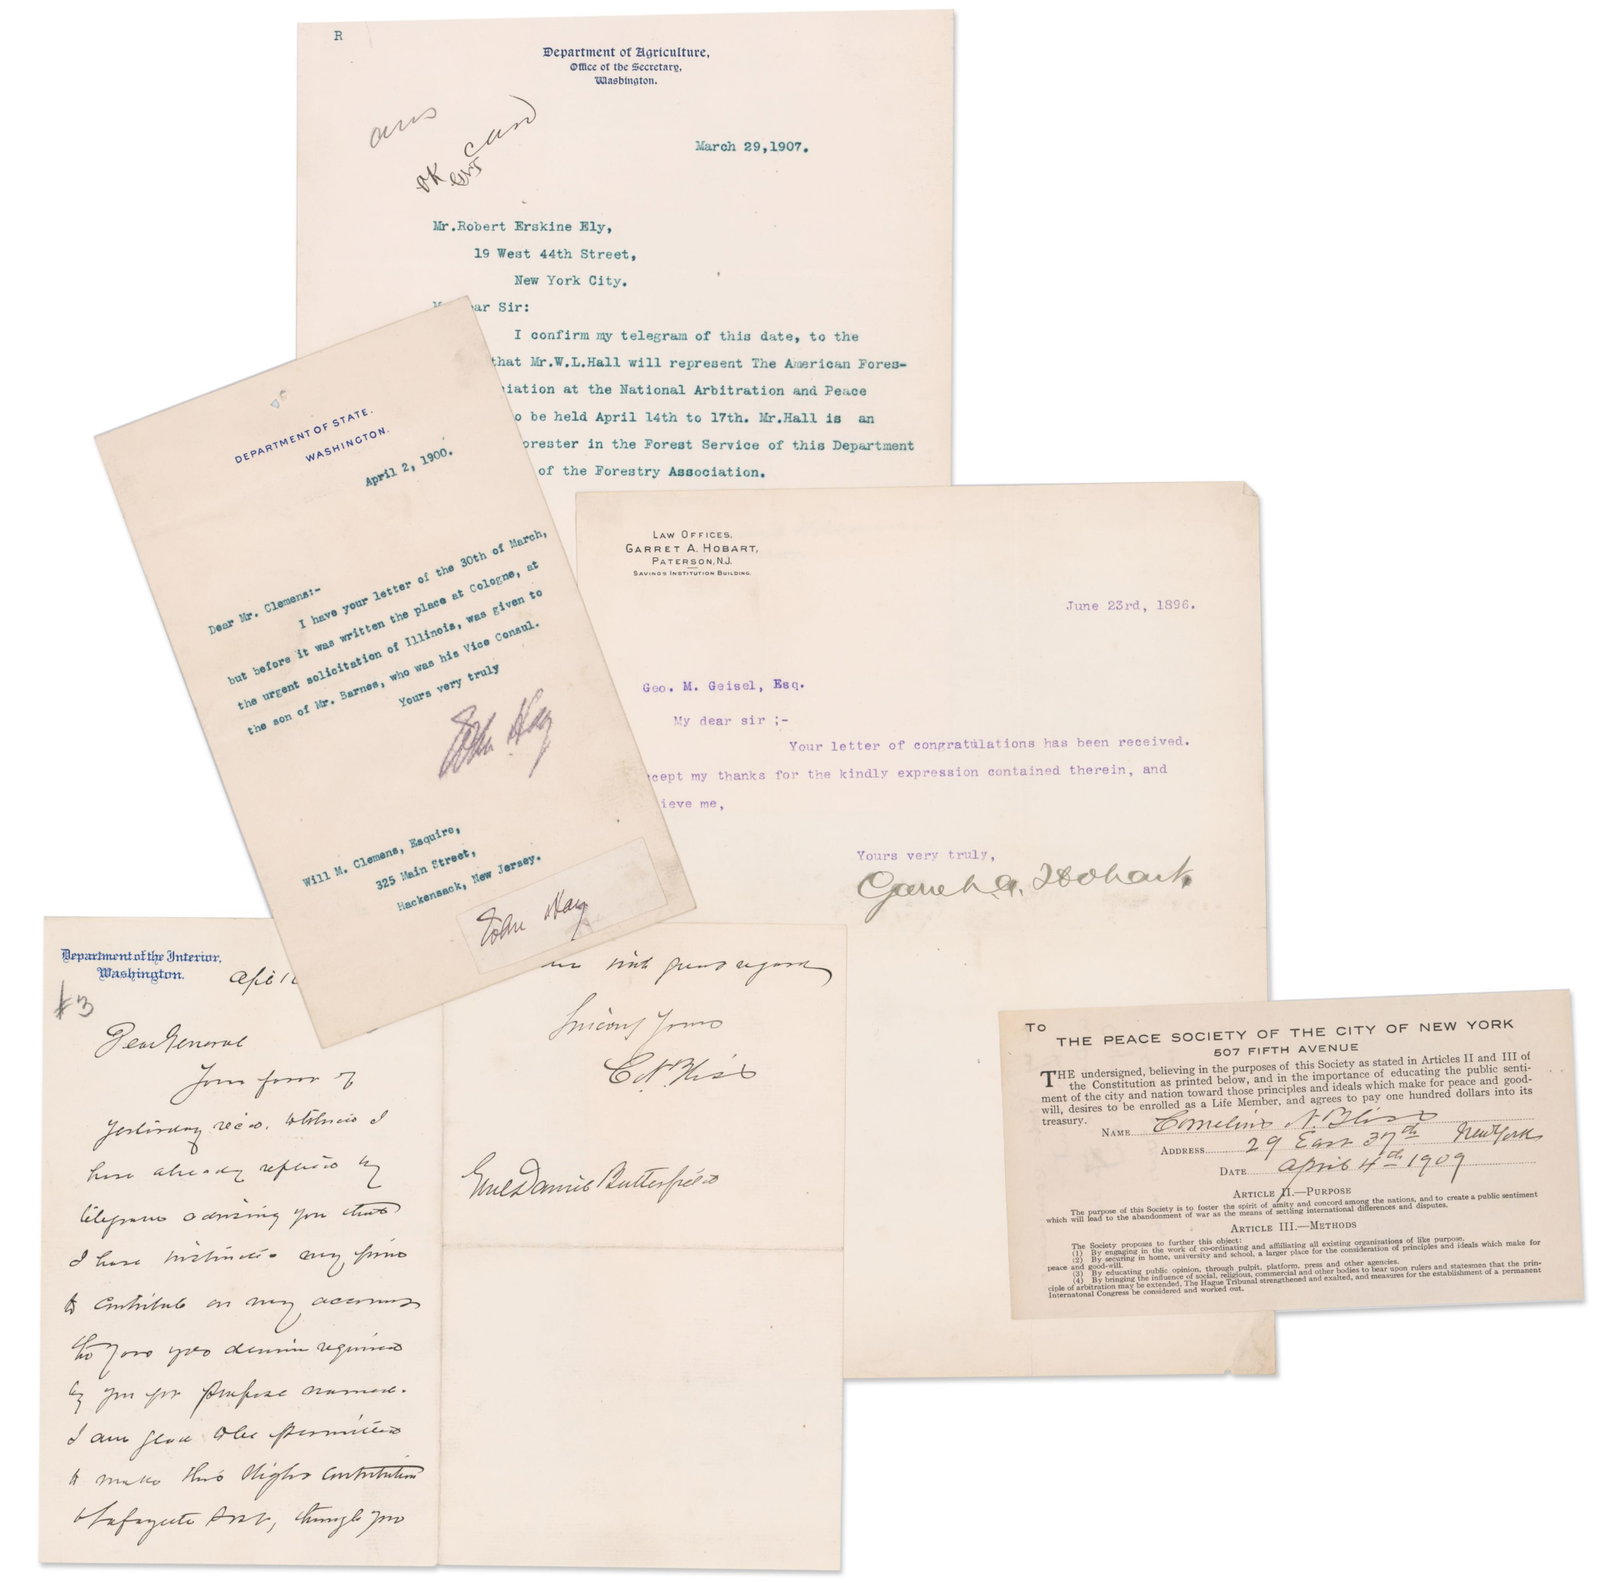 R
Department of Agriculture,
Office of the Secretary,
Washington.
OK
March 29,1907.
Mr.Robert Erskine Ely,
19 West 44th Street,
New York City.
ar Sir:
I confirm my telegram of this date, to the
that Mr.W.L.Hall will represent The American Fores-
iation at the National Arbitration and Peace
o be held April 14th to 17th. Mr.Hall is an
orester in the Forest Service of this Department
of the Forestry Association.
DEPARTMENT OF STATE.
WASHINGTON.
April 2, 1900.
Dear Mr. Clemens:-
I have your letter of the 30th of March,
but before it was written the place at Cologne, at
the urgent solicitation of Illinois, was given to
the son of Mr. Barnes, who was his Vice Consul.
Yours very truly
John Hay
Will M. Clemens, Esquire,
325 Main Street,
Hackensack, New Jersey.
John Hay
LAW OFFICES,
GARRET A. HOBART,
PATERSON, N.J.
SAVINGS INSTITUTION BUILDING.
June 23rd, 1896.
Geo. M. Geisel, Esq.
My dear sir ;-
Your letter of congratulations has been received.
ccept my thanks for the kindly expression contained therein, and
ieve me,
Yours very truly,
Garret A. Hobart
Department of the Interior,
Washington.
#3
Dear General
Your favor of
yesterday rec'd.  I
have already replied by
telegram advising you that
I have instructed my firm
to contribute on my account
the  required
by you for purpose named.
I am glad to be permitted
to make this slight contribution
to Lafayette Post, through you
with great regard
Sincerely Yours
C. N. Bliss
Genl Daniel Butterfield
TO
THE PEACE SOCIETY OF THE CITY OF NEW YORK
507 FIFTH AVENUE
THE undersigned, believing in the purposes of this Society as stated in Articles II and III of
the Constitution as printed below, and in the importance of educating the public senti-
ment of the city and nation toward those principles and ideals which make for peace and good-
will, desires to be enrolled as a Life Member, and agrees to pay one hundred dollars into its
treasury.
NAME Cornelius N. Bliss
ADDRESS 29 East 37th New York
DATE April 4th 1909
ARTICLE II.—PURPOSE
The purpose of this Society is to foster the spirit of amity and concord among the nations, and to create a public sentiment
which will lead to the abandonment of war as the means of settling international differences and disputes.
ARTICLE III.—METHODS
The Society proposes to further this object:
(1) By engaging in the work of co-ordinating and affiliating all existing organizations of like purpose.
(2) By securing in home, university and school, a larger place for the consideration of principles and ideals which make for
peace and good-will.
(3) By educating public opinion, through pulpit, platform, press and other agencies.
(4) By bringing the influence of social, religious, commercial and other bodies to bear upon rulers and statesmen that the prin-
ciple of arbitration may be extended, The Hague Tribunal strengthened and exalted, and measures for the establishment of a permanent
Internatonal Congress be considered and worked out.